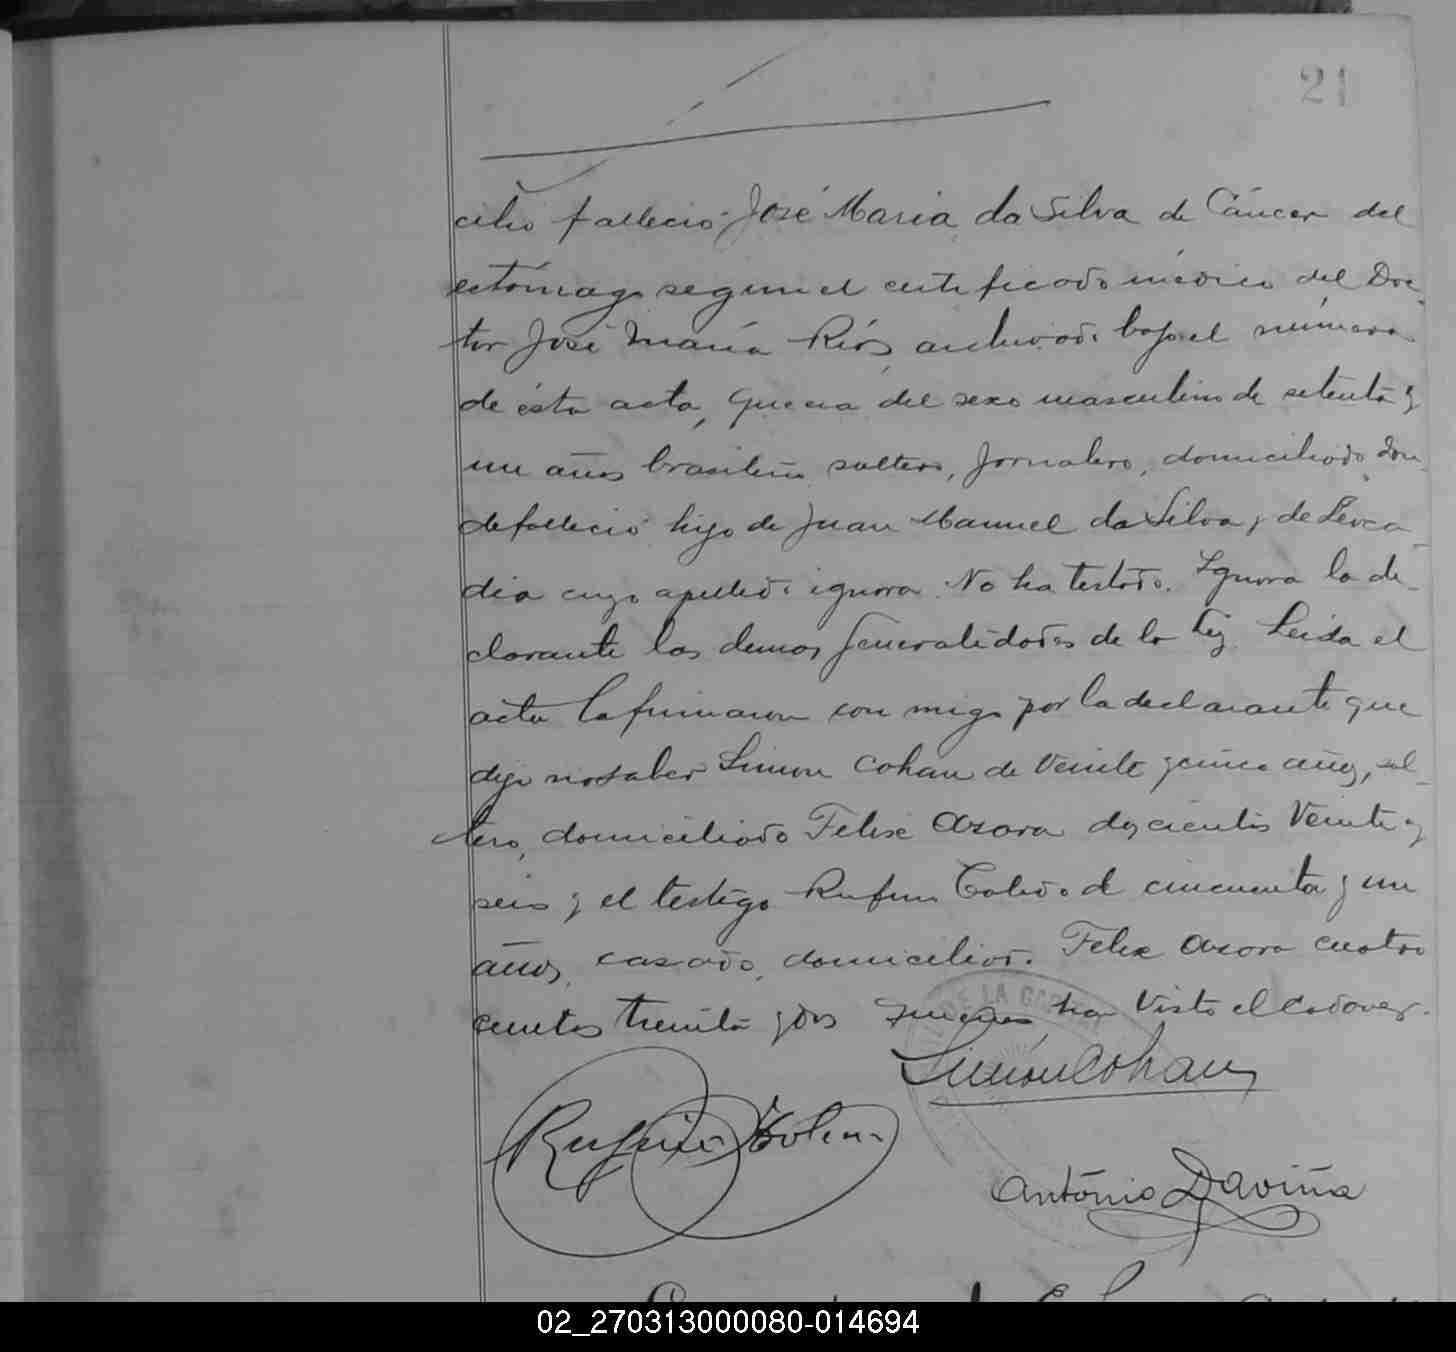 21
cilio falleció José Maria da Silva de Cáncer del
estómago segun el certificado médico del Doc-
tor José María Ríos archivado bajo el número
de ésta acta, que era del sexo masculino de setenta y
un años brasileño soltero, jornalero, domiciliado don-
de falleció hijo de Juan Manuel da Silva y de Leoca-
dia cuyo apellido ignora. No ha testado. Ignora la de-
clarante las demas generalidades de la ley. Leida el
acta la firmaron con migo por la declarante que
dijo no saber Simon Cohan de veinte y cinco años, sol-
tero, domiciliado Felix Azara doscientos veinte y
seis y el testigo Rufino de cincuenta y un
años, casado, domiciliado Felix Azara cuatro
cientos treinta y dos quienes han visto el cadaver.
Simón Cohan
Rufino
Antonio Daviña
DE LA CAPITAL
02_270313000080-014694